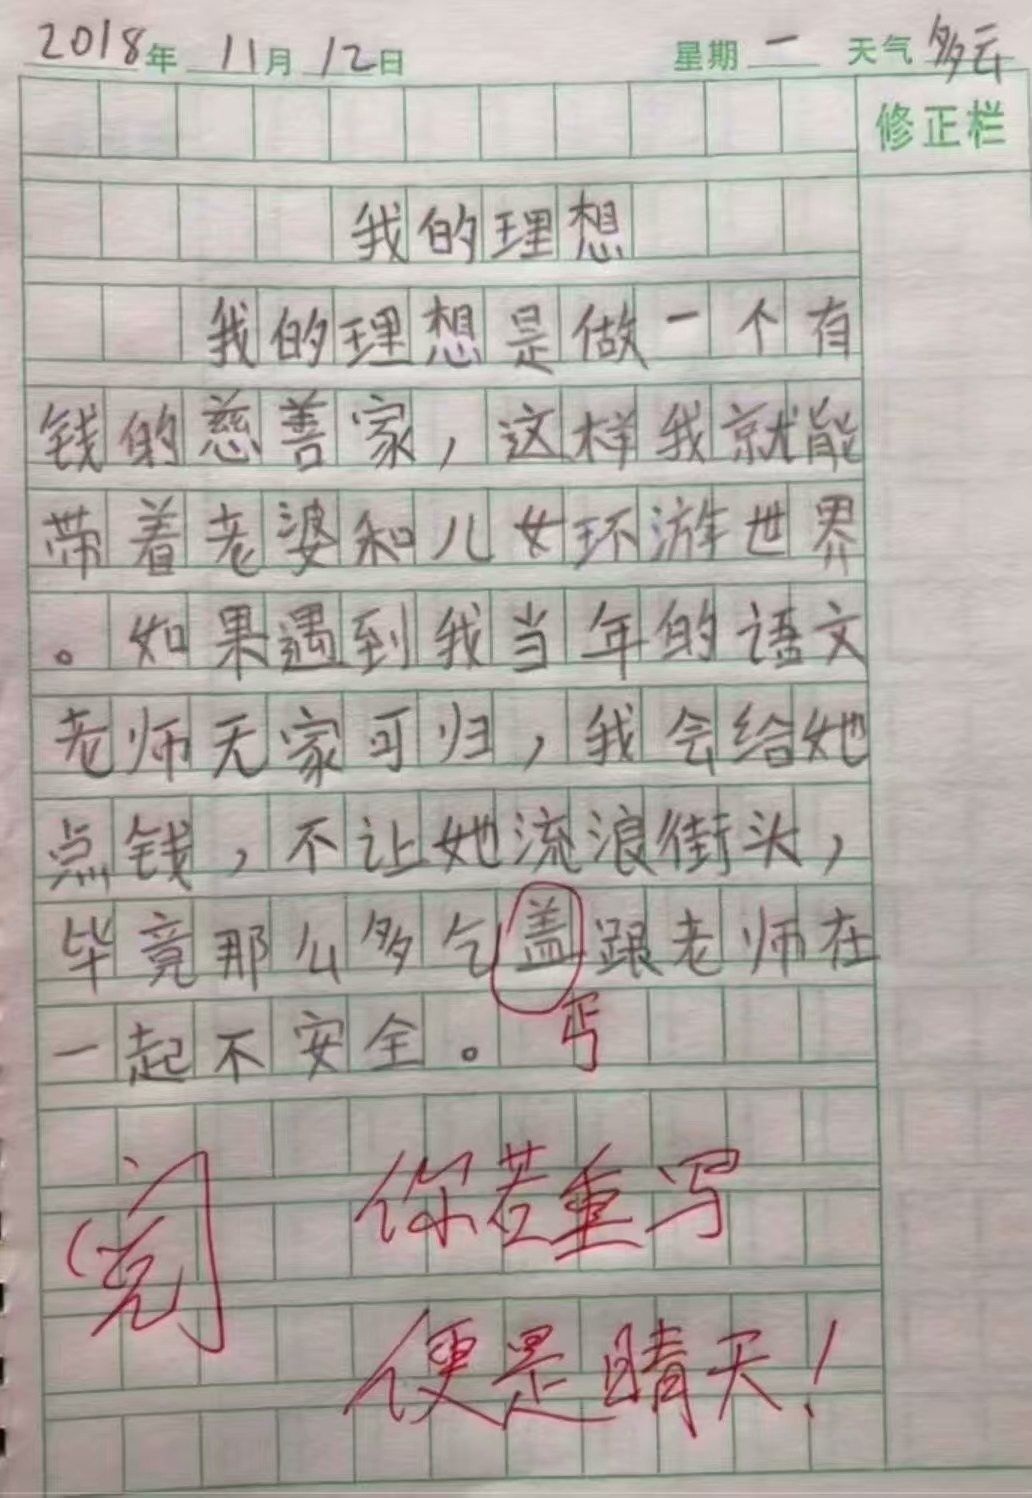 2018年 11月 12日 星期 一 天气 多云
修正栏
我的理想
我的理想是做一个有
钱的慈善家，这样我就能
带着老婆和儿女环游世界
。如果遇到我当年的语文
老师无家可归，我会给她
点钱，不让她流浪街头，
毕竟那么多乞盖跟老师在
一起不安全。 丐
阅
你若重写
便是晴天！